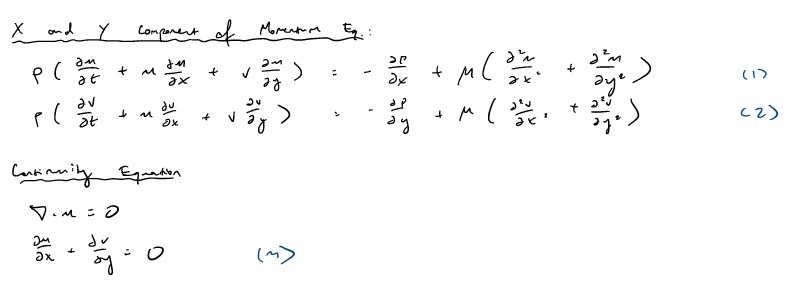 X and Y Component of Momentum Eq.:
ρ ( ∂u/∂t + u ∂u/∂x + v ∂u/∂y ) = - ∂P/∂x + μ ( ∂²u/∂x² + ∂²u/∂y² ) (1)
ρ ( ∂v/∂t + u ∂v/∂x + v ∂v/∂y ) = - ∂P/∂y + μ ( ∂²v/∂x² + ∂²v/∂y² ) (2)
Continuity Equation
∇ · u = 0
∂u/∂x + ∂v/∂y = 0 (n)